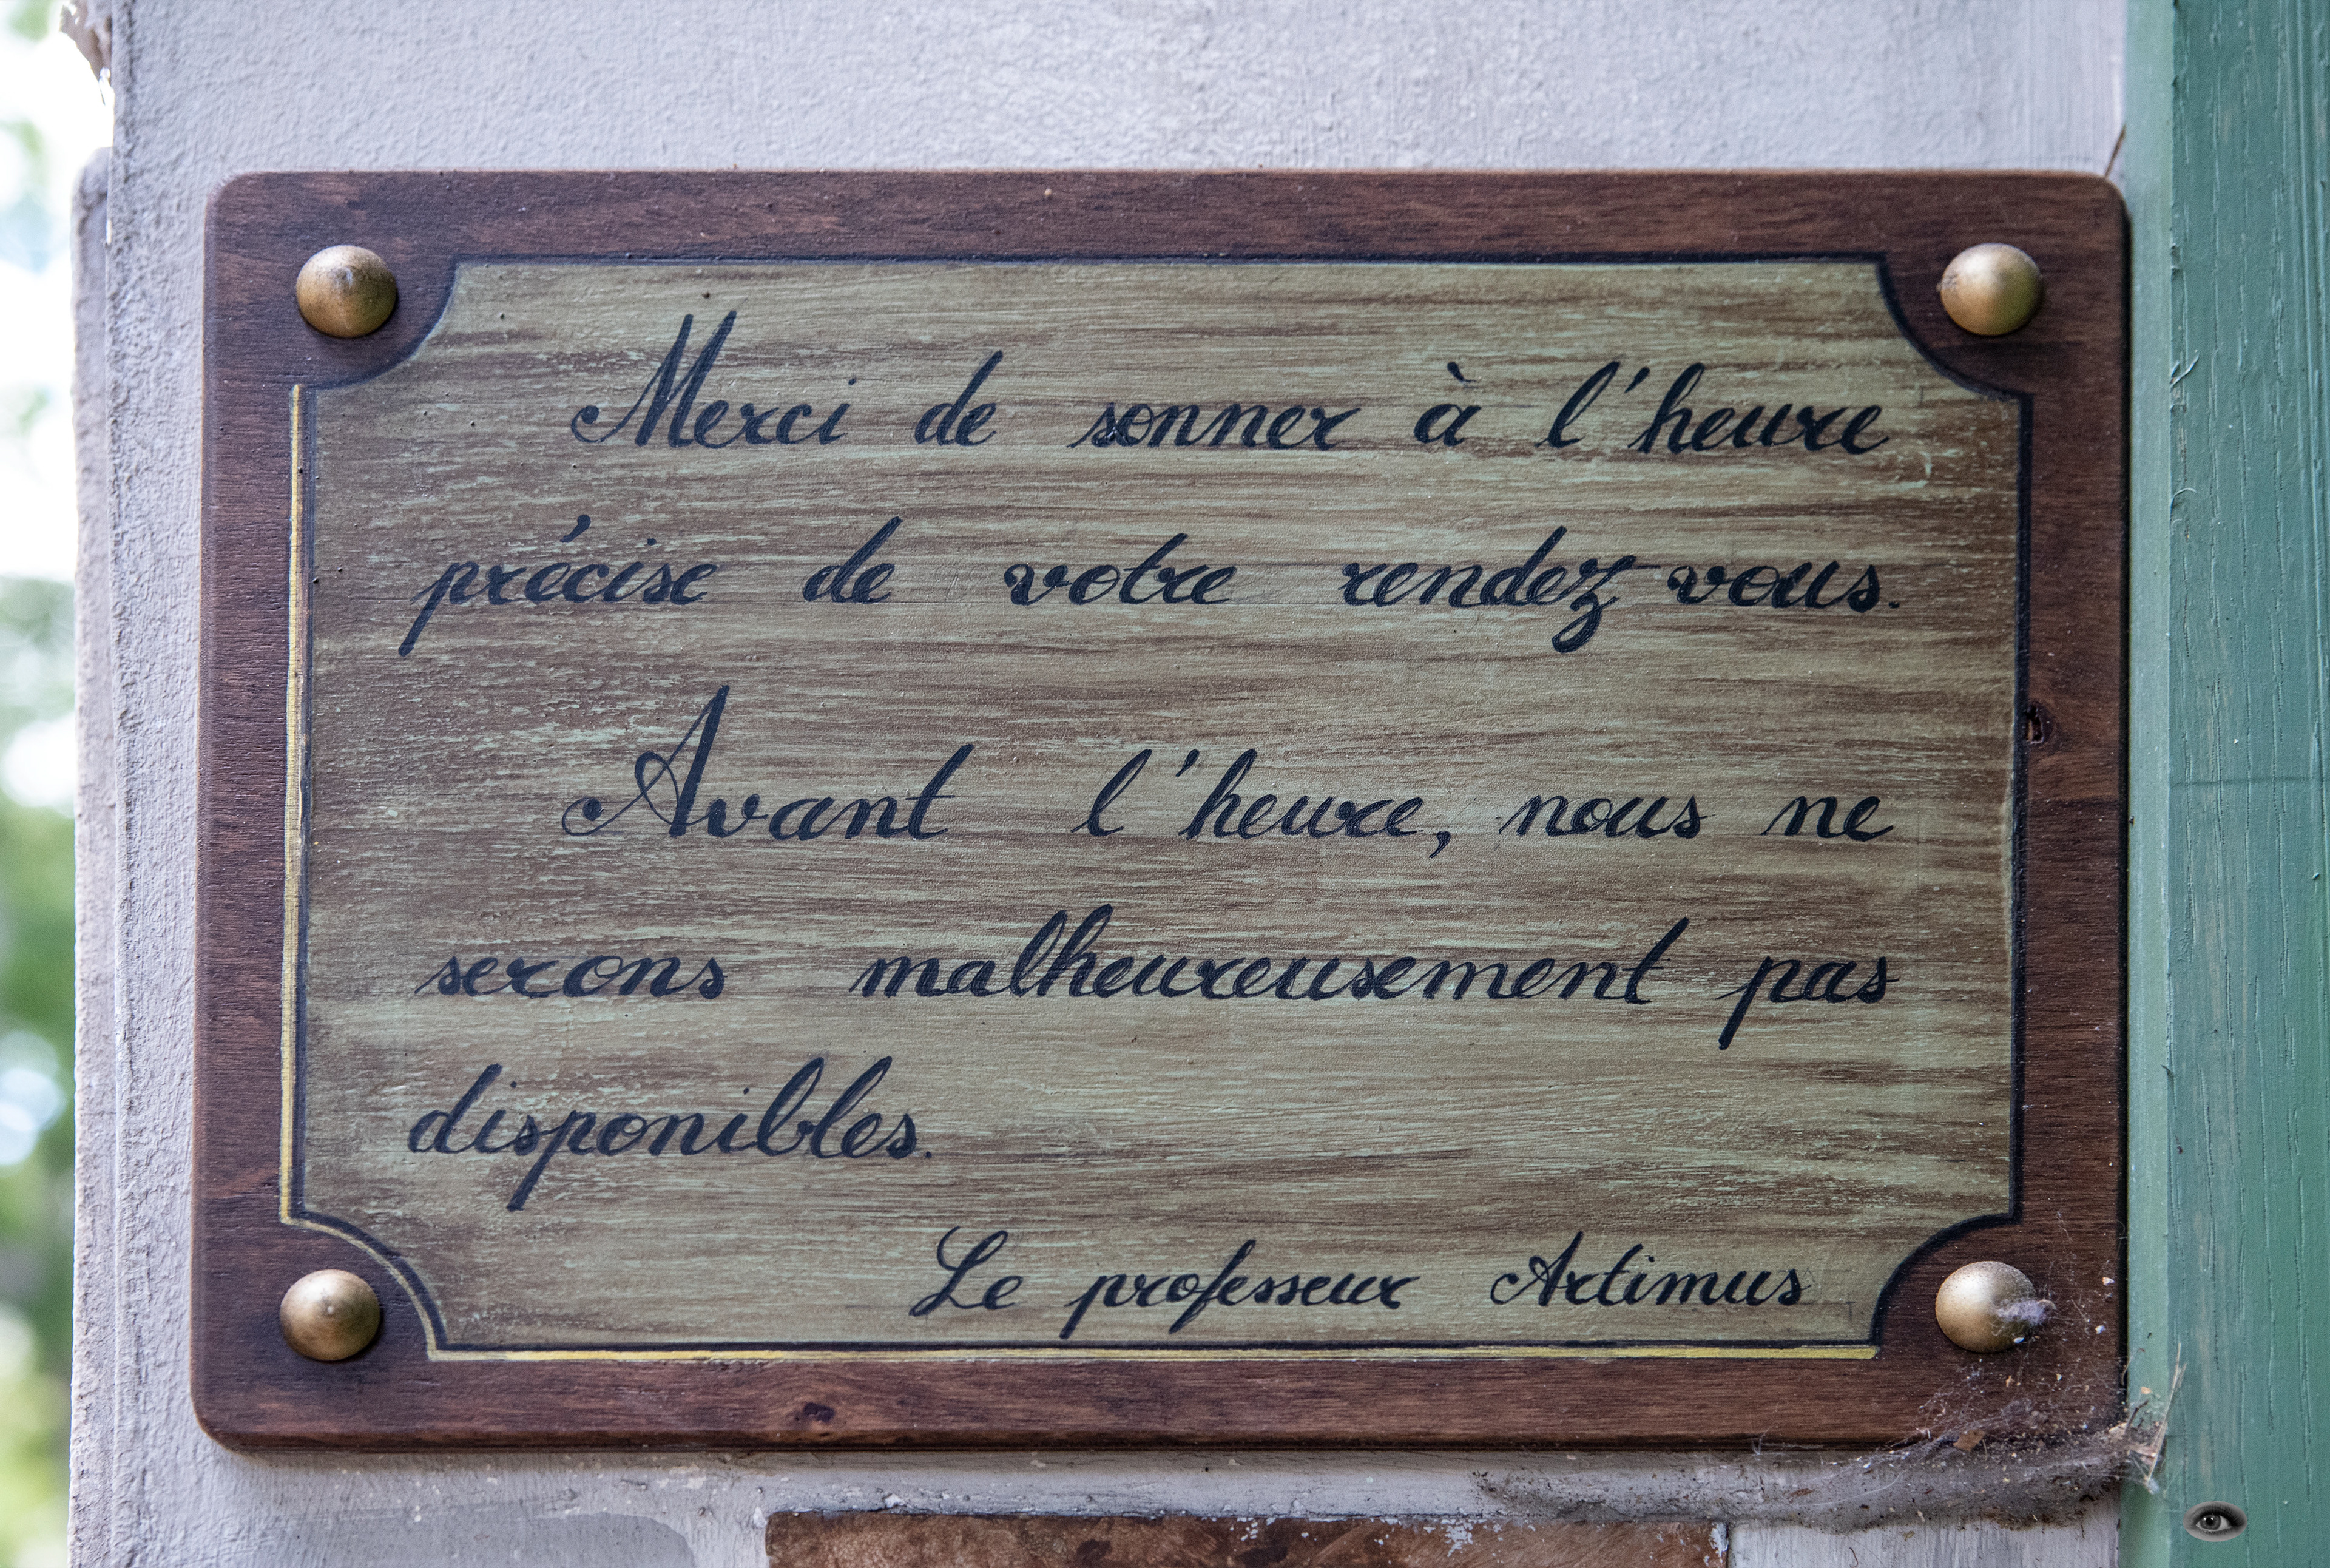 Merci de sonner à l'heure
précise de votre rendez-vous.
Avant l'heure, nous ne
serons malheureusement pas
disponibles.
Le professeur Artimus